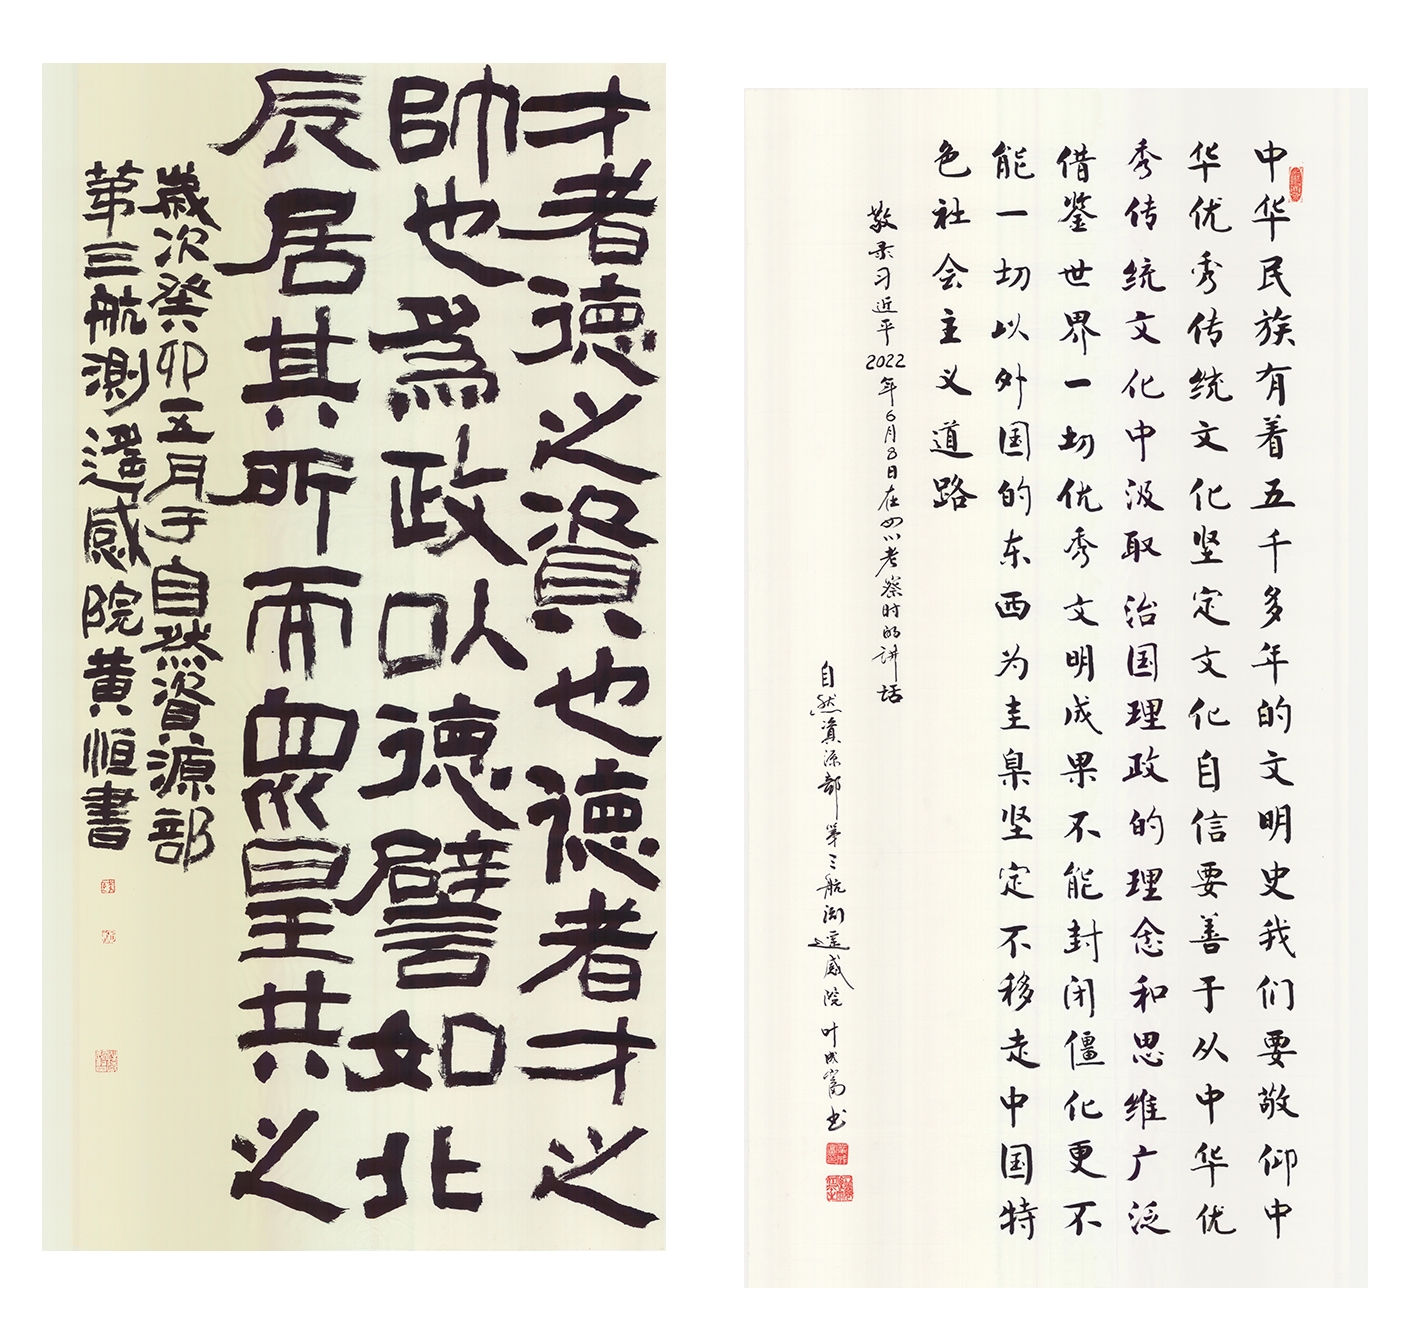 才者德之資也德者才之
帥也爲政以德譬如北
辰居其所而眾星共之
歲次癸卯五月于自然資源部
第三航測遥感院黄恒書
中华民族有着五千多年的文明史我们要敬仰中
华优秀传统文化坚定文化自信要善于从中华优
秀传统文化中汲取治国理政的理念和思维广泛
借鉴世界一切优秀文明成果不能封闭僵化更不
能一切以外国的东西为圭臬坚定不移走中国特
色社会主义道路
敬录习近平2022年6月8日在四川考察时的讲话
自然資源部第三航测遥感院叶成富书